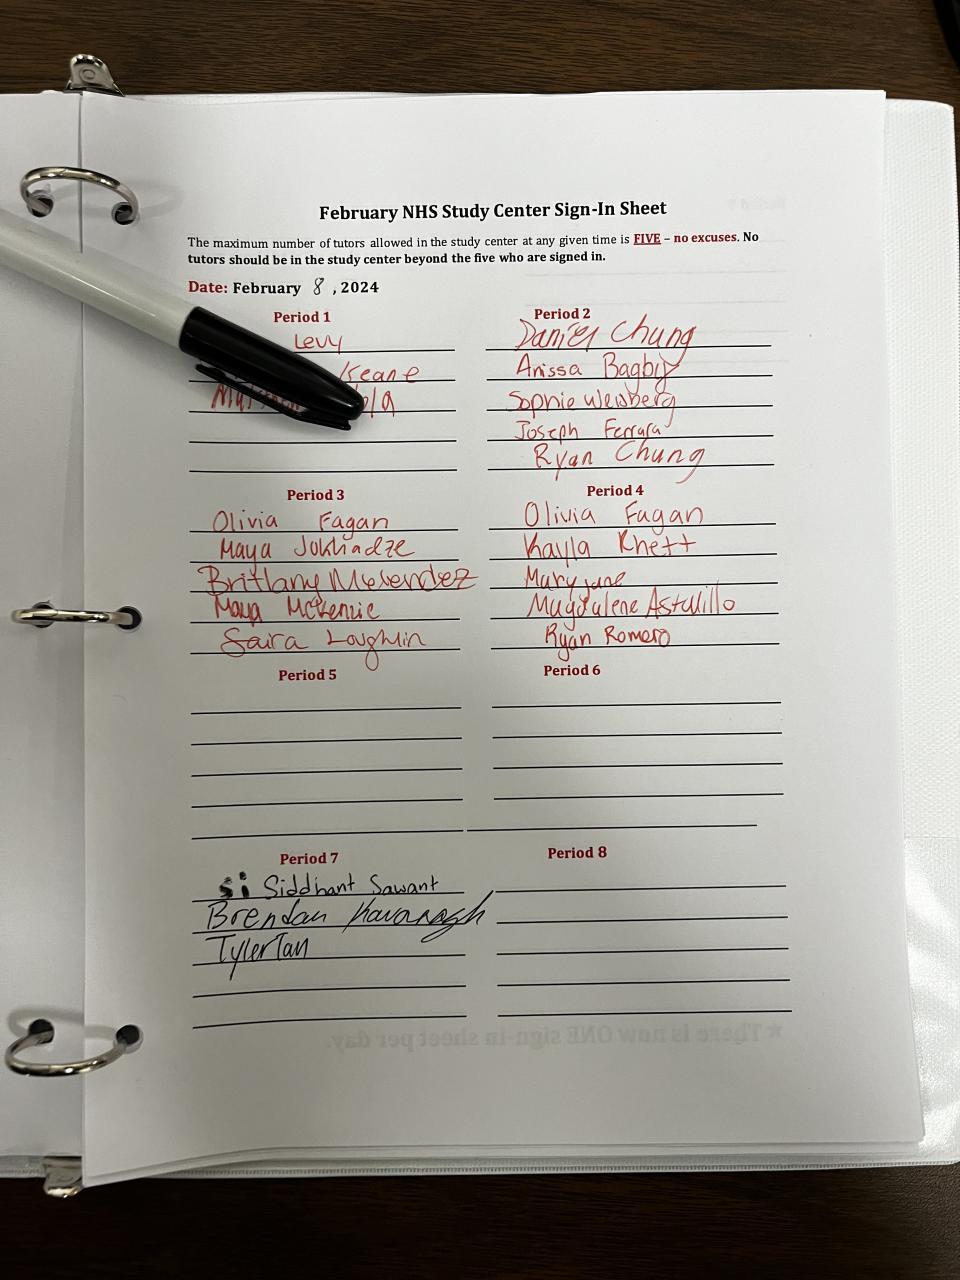 February NHS Study Center Sign-In Sheet
The maximum number of tutors allowed in the study center at any given time is FIVE – no excuses. No
tutors should be in the study center beyond the five who are signed in.
Date: February 8, 2024
Period 1
Levy
Keane
Period 2
Daniel Chung
Arissa Bagby
Sophie Weisberg
Joseph Ferrara
Ryan Chung
Period 3
Olivia Fagan
Maya Jokhadze
Brittany Melendez
Maya McKenzie
Saira Loughlin
Period 4
Olivia Fagan
Kayla Khett
Mary jane
Magdalene Astudillo
Ryan Romero
Period 5
Period 6
Period 7
Si Siddhant Sawant
Brendan Kavanagh
Tyler Tan
Period 8
*There is now ONE sign-in sheet per day.